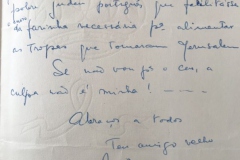 pobre judeu português que facilitasse
da farinha necessária pª alimentar
as tropas que tomaram Jerusalem
Se não vou pª o ceo, a
culpa não é minha! - - -
Abraços a todos
Teu amigo velho